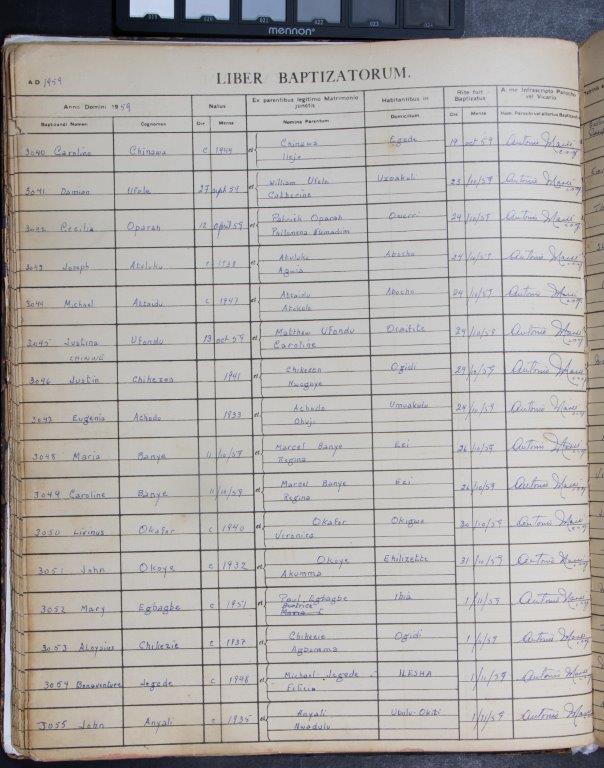 021 022 023
mennon
LIBER BAPTIZATORUM.
A D 1959
Anno Domini 1959 Natus Ex parentibus legitimo Matrimonio junctis Habitantibus in Rite fuit Baptizatus A me infrascripto Parocho vel Vicario
Baptizandi Nomen Cognomen Die Mense Nomina Parentum Domicilium Die Mense
3040 Caroline Chinawa c 1944 Chinawa Egede 19 oct 59 Antonio
et
3041 Damian Ufele 27 sept 59 William Ufele Uzoakoli 23 /10/59 Antonio
et Catherine
3042 Cecilia Oparah 12 april 59 Patrick Oparah Owerri 24 /10/59 Antonio
et Philomena
3043 Joseph Atuluku c 1938 Atuluku Abocho 24 /10/59 Antonio
et
3044 Michael Attaidu c 1947 Attaidu Abocho 24 /10/59 Antonio
et
3045 Justina Ufondu 13 oct 59 Matthew Ufondu Oraifite 24 /10/59 Antonio
CHINWE et Caroline
3046 Justin Chikezea 1941 Chikezea Ogidi 24 /10/59 Antonio
et Nwagoye
3047 Eugenia Achodo 1933 Achodo Umuakulu 24 /10/59 Antonio
et Ohuji
3048 Maria Banye 11 /10/59 Marcel Banye Eei 26 /10/59 Antonio
et Regina
3049 Caroline Banye 11 /10/59 Marcel Banye Eei 26 /10/59 Antonio
et Regina
3050 Livinus Okafor c 1940 Okafor Okigwe 30 /10/59 Antonio
et Veronica
3051 John Okoye c 1932 Okoye 31 /10/59 Antonio
et Akumma
3052 Mary Egbagbe c 1951 Paul Egbagbe Ibia 1 /11/59 Antonio
et Beatrice
3053 Aloysius Chikezie c 1937 Chikezie Ogidi 1 /11/59 Antonio
et Agbomma
3054 Bonaventure Jegede c 1948 Michael Jegede ILESHA 1 /11/59 Antonio
et Felicia
3055 John Anyali c 1935 Anyali Ubulu-Okiti 1 /11/59 Antonio
et Nwadulu